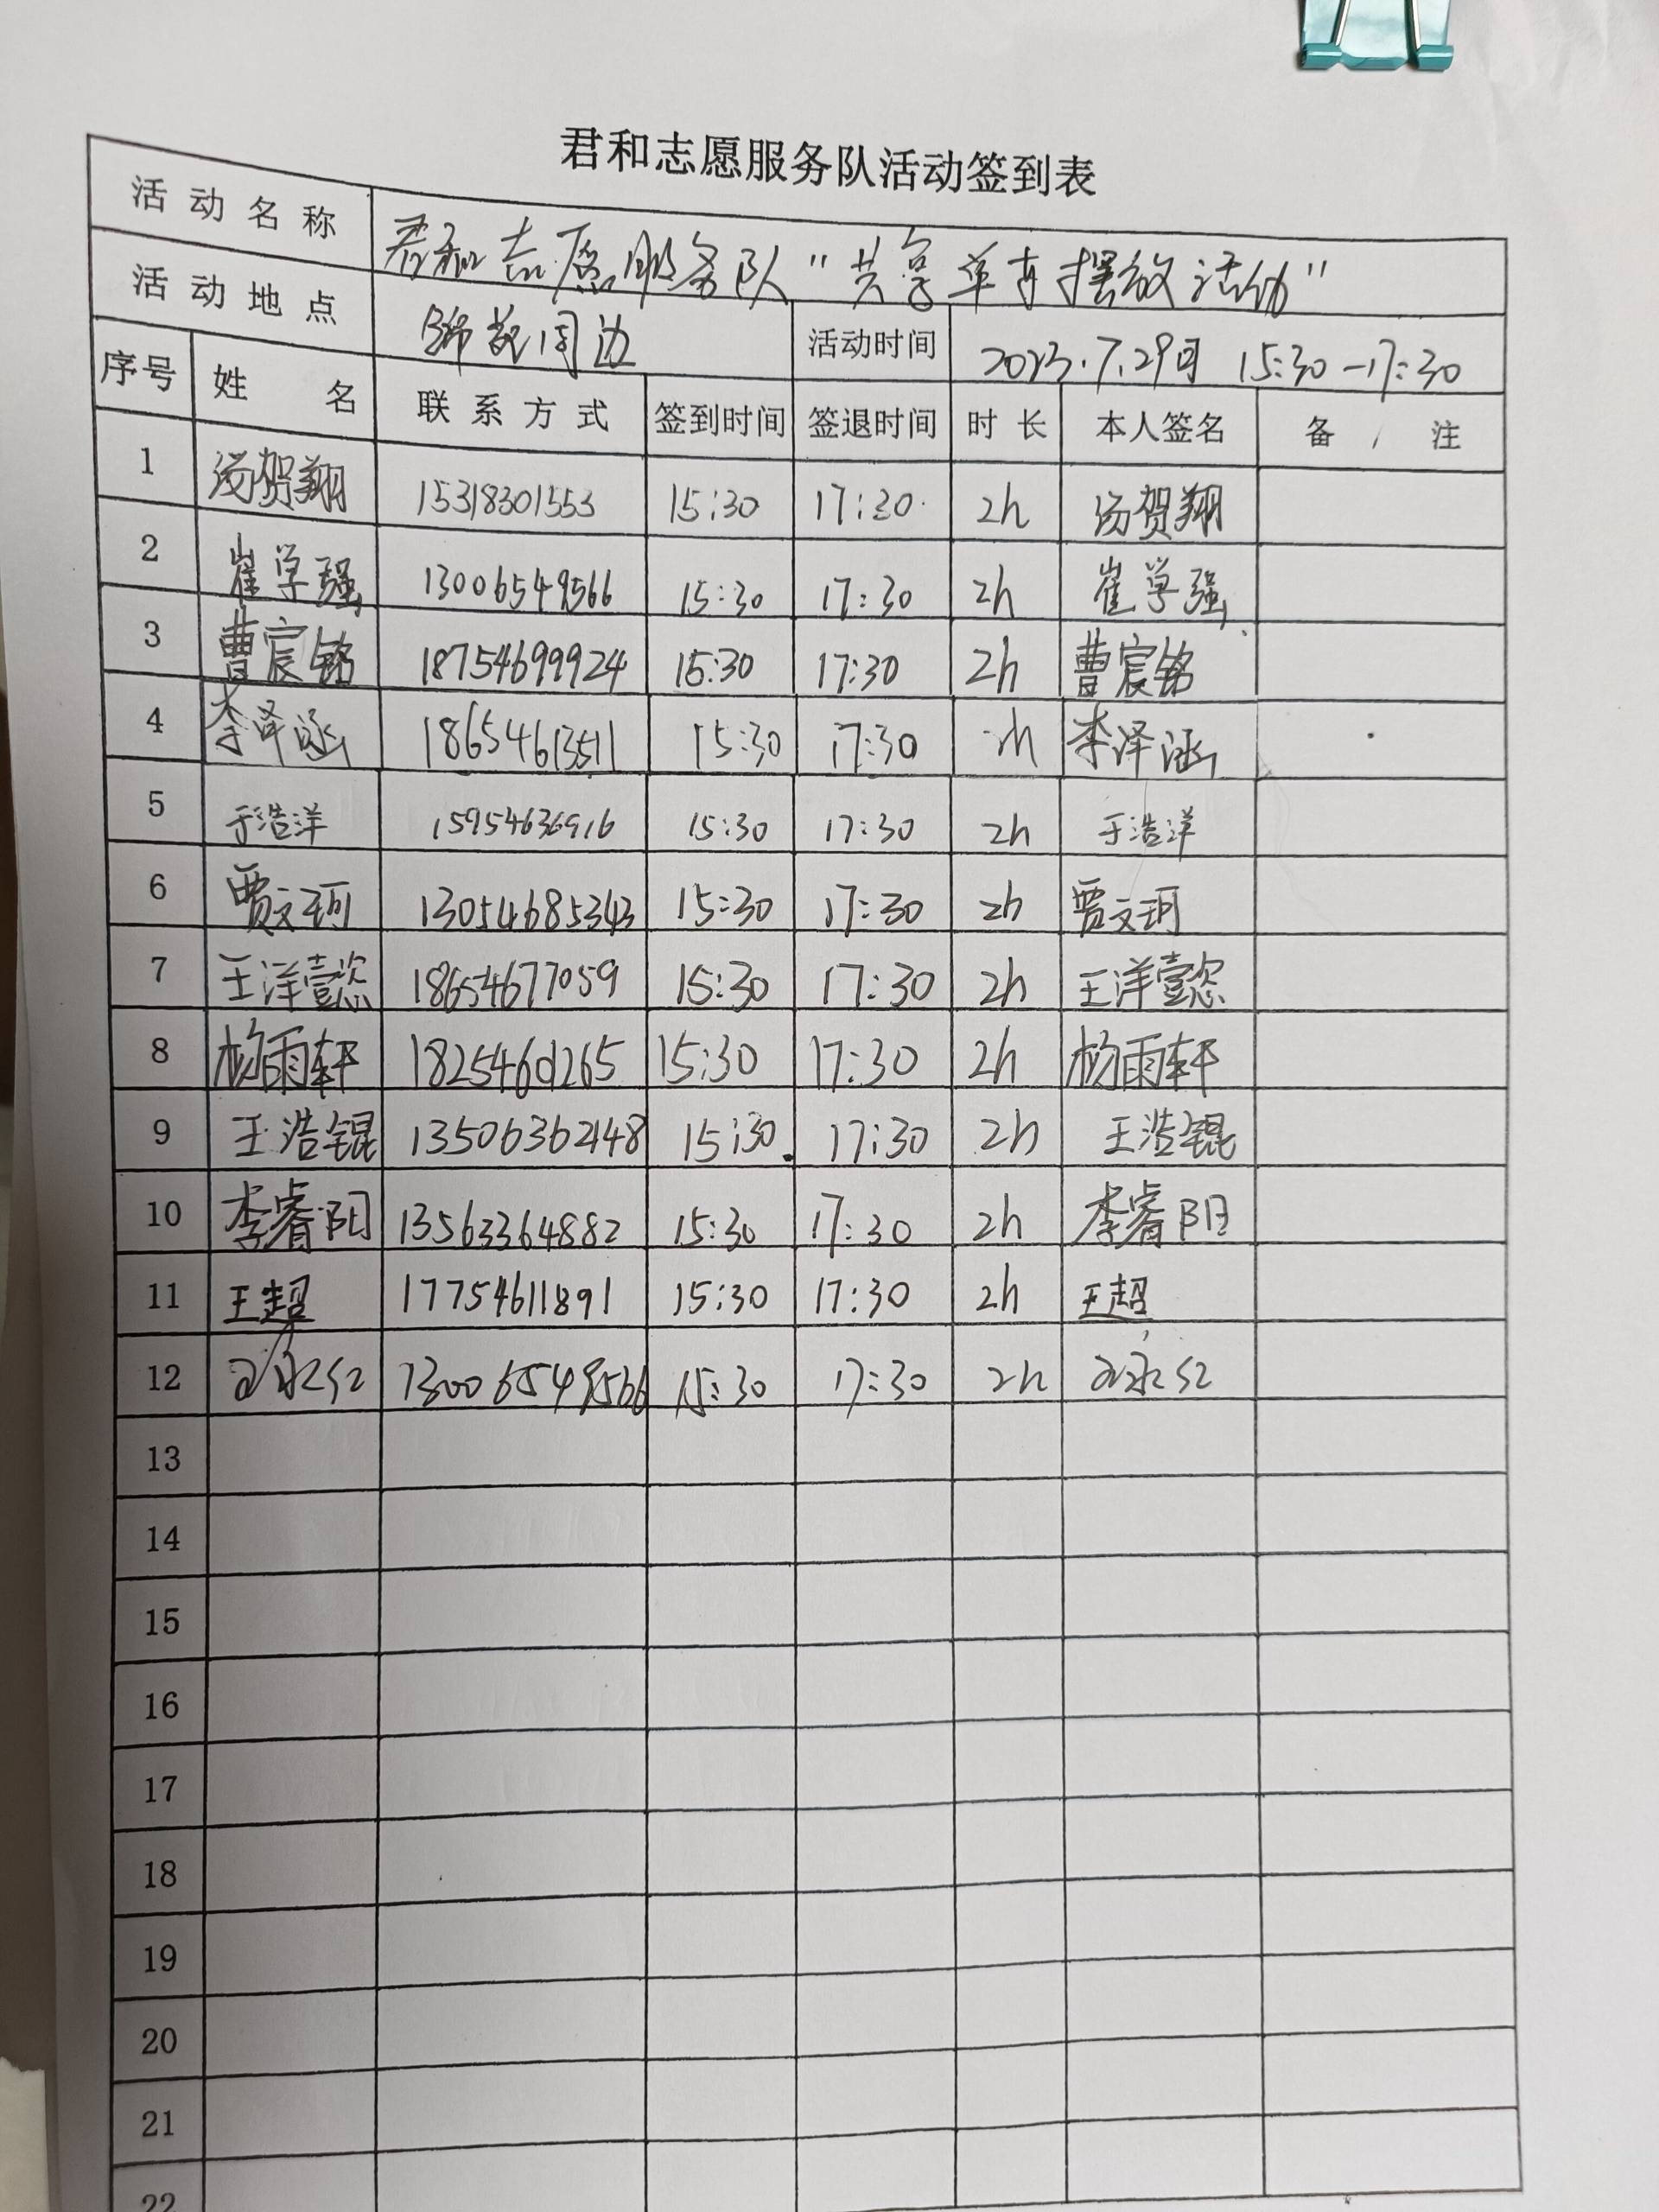 君和志愿服务队活动签到表
活动名称 君和志愿服务队"共享单车摆放活动"
活动地点 周边 活动时间 2023.7.29日 15:30-17:30
序号 姓 名 联系方式 签到时间 签退时间 时长 本人签名 备 注
1 汤贺翔 15318301553 15:30 17:30 2h 汤贺翔
2 崔学强 13006549566 15:30 17:30 2h 崔学强
3 曹宸铭 18754699924 15:30 17:30 2h 曹宸铭
4 李泽涵 18654613511 15:30 17:30 2h 李泽涵
5 于浩洋 15954636916 15:30 17:30 2h 于浩洋
6 贾文珂 13054685343 15:30 17:30 2h 贾文珂
7 王洋壹恣 18654677059 15:30 17:30 2h 王洋壹恣
8 杨雨轩 15:30 17:30 2h 杨雨轩
9 王浩锟 13506362148 15:30 17:30 2h 王浩锟
10 李睿阳 13563364882 15:30 17:30 2h 李睿阳
11 王超 17754611891 15:30 17:30 2h 王超
12 13006549566 15:30 17:30 2h
13
14
15
16
17
18
19
20
21
22